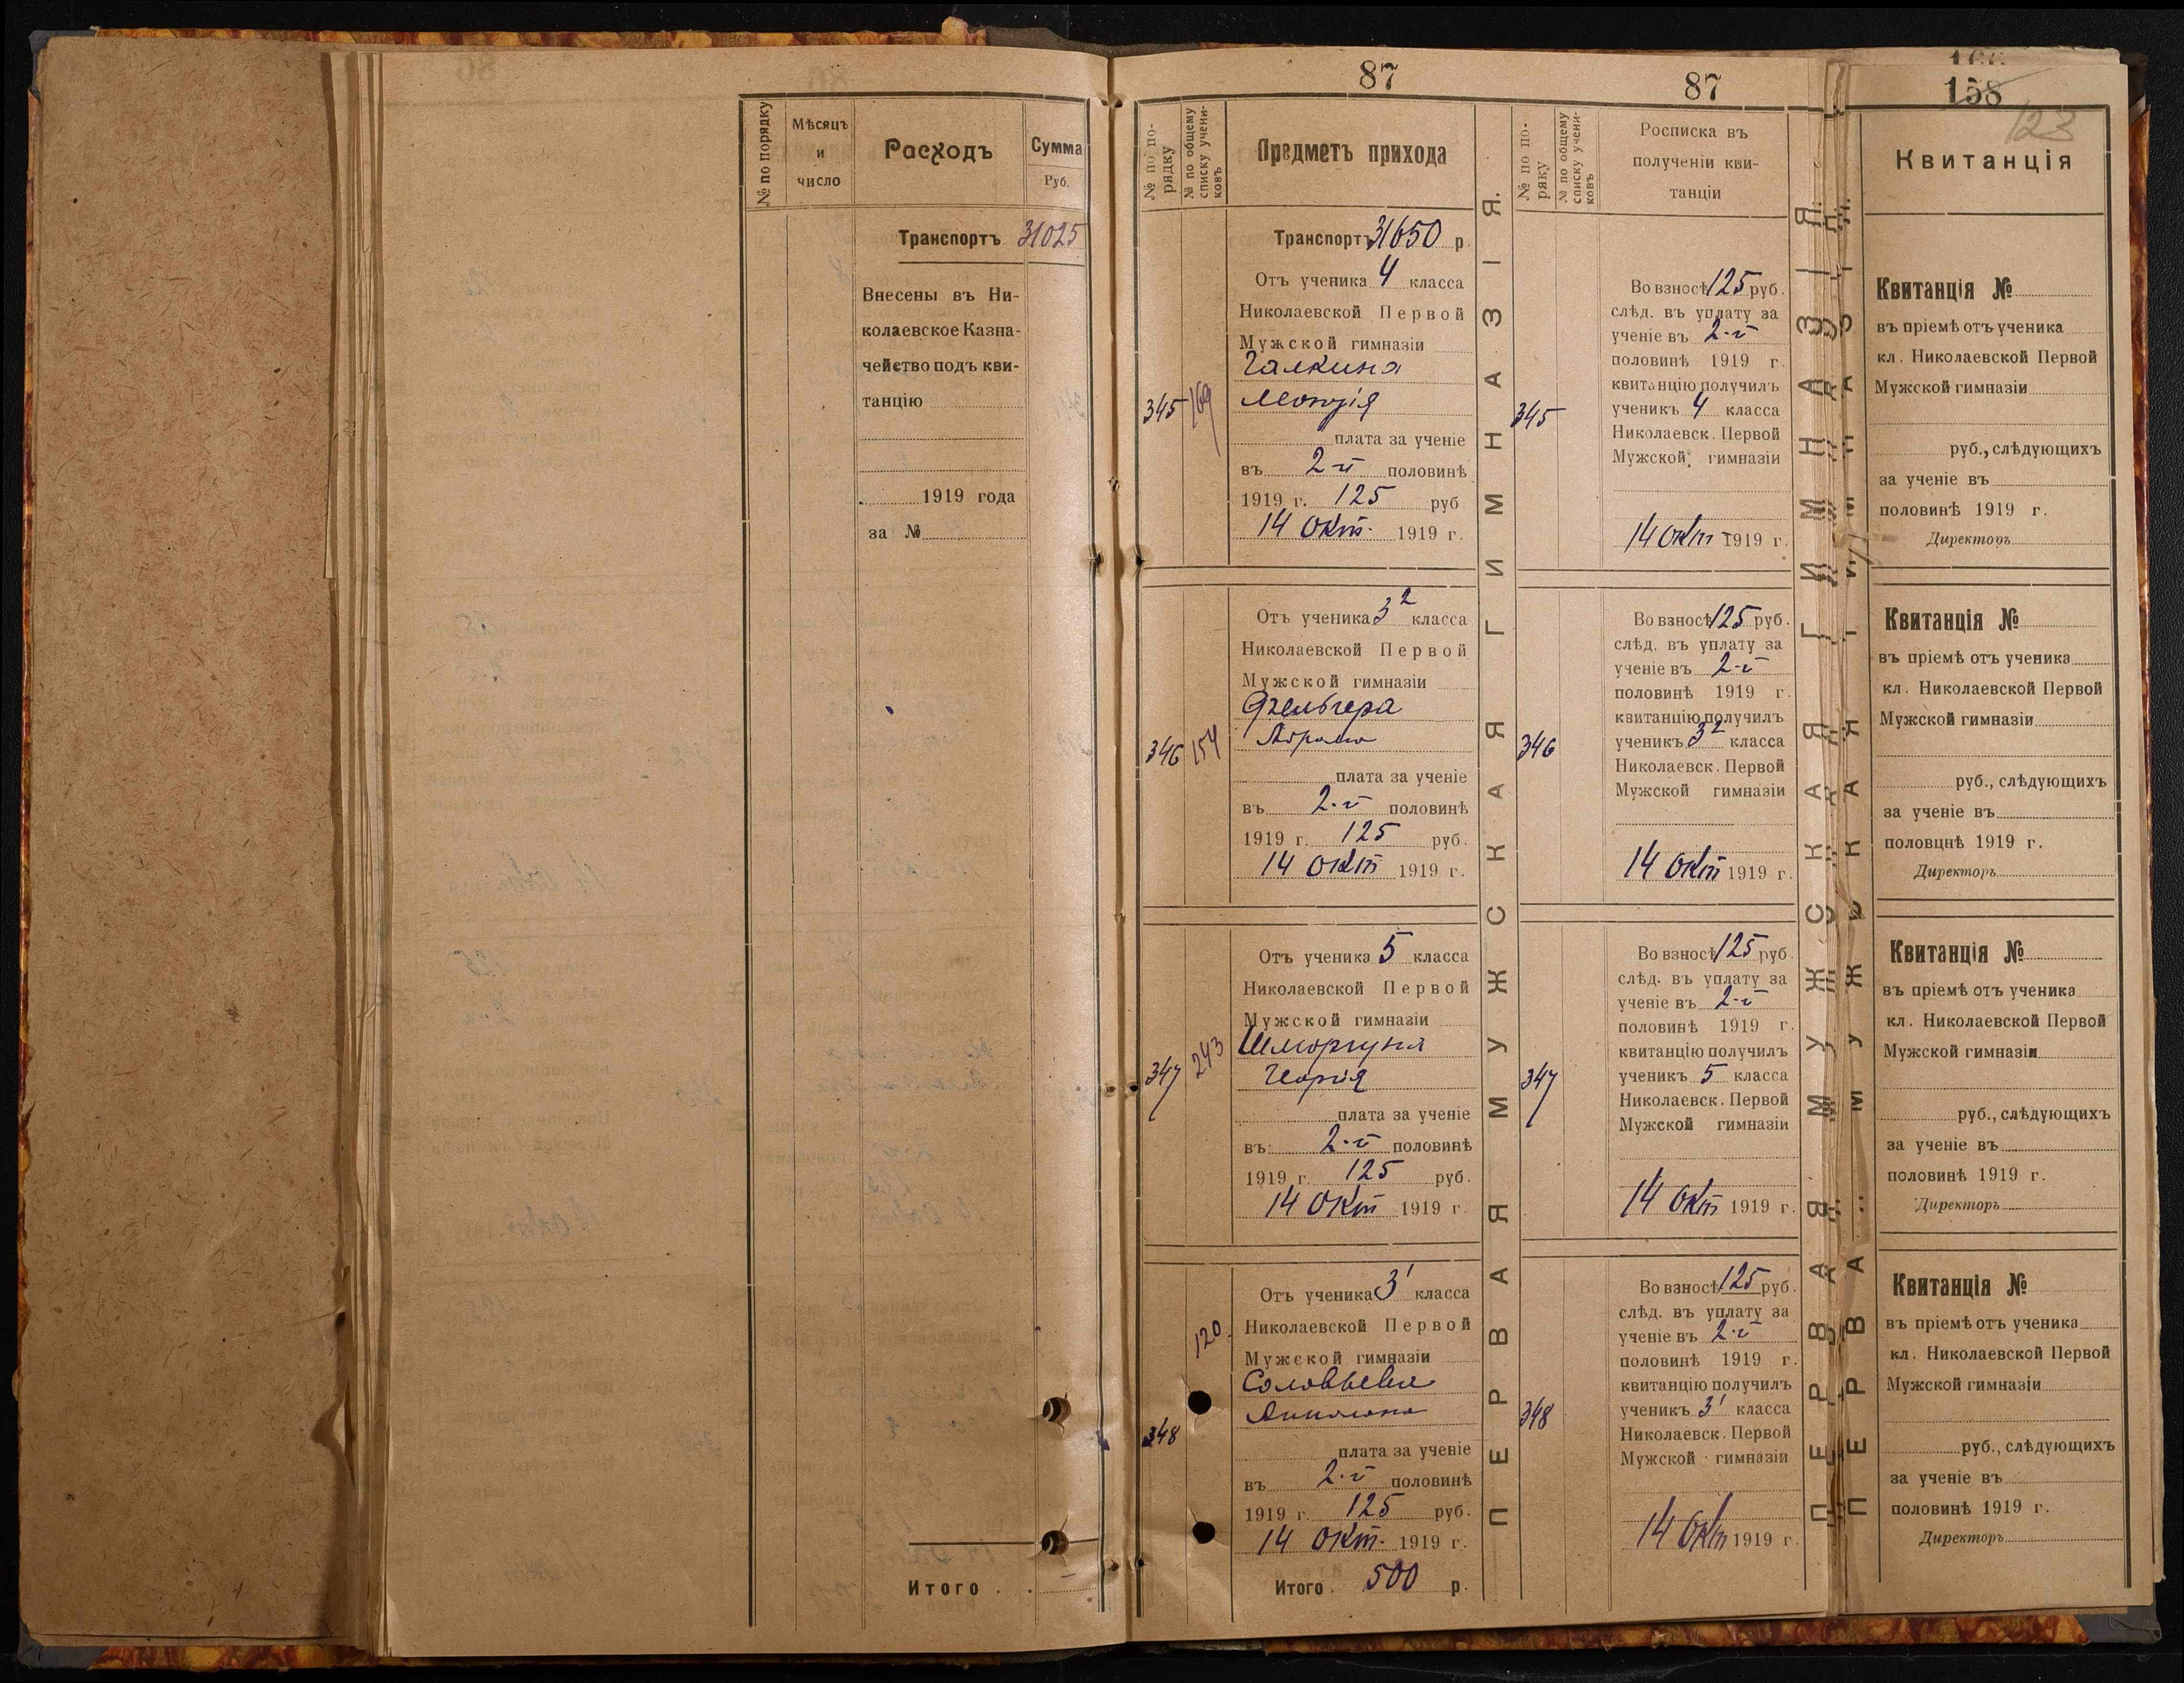 № по порядку
Мѣсяцъ
и
число
Расходъ
Сумма
Руб.
Транспортъ 31025
Внесены въ Ни-
колаевское Казна-
чейство подъ кви-
танцію
1919 года
за №
Итого . .
87
№ по по-
рядку
№ по общему
списку учени-
ковъ
Предметъ прихода
Транспортъ 31650 р
Отъ ученика 4 класса
Николаевской Первой
Мужской гимназіи
Галкина
345 169
плата за ученіе
въ 2-й половинѣ
1919 г. 125 руб
14 окт. 1919 г.
Отъ ученика 3² класса
Николаевской Первой
Мужской гимназіи
Фельгера
Абрама
346 154
плата за ученіе
въ 2-й половинѣ
1919 г. 125 руб.
14 окт 1919 г.
Отъ ученика 5 класса
Николаевской Первой
Мужской гимназіи
Шморгуна
347 243
плата за ученіе
въ 2-й половинѣ
1919 г. 125 руб.
14 окт 1919 г.
Отъ ученика 3¹ класса
120
Николаевской Первой
Мужской гимназіи
Соловьева
348
плата за ученіе
въ 2-й половинѣ
1919 г. 125 руб.
14 окт. 1919 г.
Итого . 500 р.
ПЕРВАЯ МУЖСКАЯ ГИМНАЗІЯ.
87
№ по по-
ряку
№ по общему
списку учени-
ковъ
Росписка въ
полученіи кви-
танціи
Во взносѣ 125 руб.
слѣд. въ уплату за
ученіе въ 2-й
половинѣ 1919 г.
квитанцію получилъ
345
ученикъ 4 класса
Николаевск. Первой
Мужской гимназіи
14 окт 1919 г.
Во взносѣ 125 руб.
слѣд. въ уплату за
ученіе въ 2-й
половинѣ 1919 г.
квитанцію получилъ
346
ученикъ 3² класса
Николаевск. Первой
Мужской гимназіи
14 окт 1919 г.
Во взносѣ 125 руб.
слѣд. въ уплату за
ученіе въ 2-й
половинѣ 1919 г.
квитанцію получилъ
347
ученикъ 5 класса
Николаевск. Первой
Мужской гимназіи
14 окт 1919 г.
Во взносѣ 125 руб.
слѣд. въ уплату за
ученіе въ 2-й
половинѣ 1919 г.
квитанцію получилъ
348
ученикъ 3¹ класса
Николаевск. Первой
Мужской гимназіи
14 окт 1919 г.
ПЕРВАЯ МУЖСКАЯ ГИМНАЗІЯ
158
123
Квитанція
Квитанція №
въ пріемѣ отъ ученика
кл. Николаевской Первой
Мужской гимназіи
руб., слѣдующихъ
за ученіе въ
половинѣ 1919 г.
Директоръ
Квитанція №
въ пріемѣ отъ ученика
кл. Николаевской Первой
Мужской гимназіи
руб., слѣдующихъ
за ученіе въ
половцнѣ 1919 г.
Директоръ
Квитанція №
въ пріемѣ отъ ученика
кл. Николаевской Первой
Мужской гимназіи
руб., слѣдующихъ
за ученіе въ
половинѣ 1919 г.
Директоръ
Квитанція №
въ пріемѣ отъ ученика
кл. Николаевской Первой
Мужской гимназіи
руб., слѣдующихъ
за ученіе въ
половинѣ 1919 г.
Директоръ